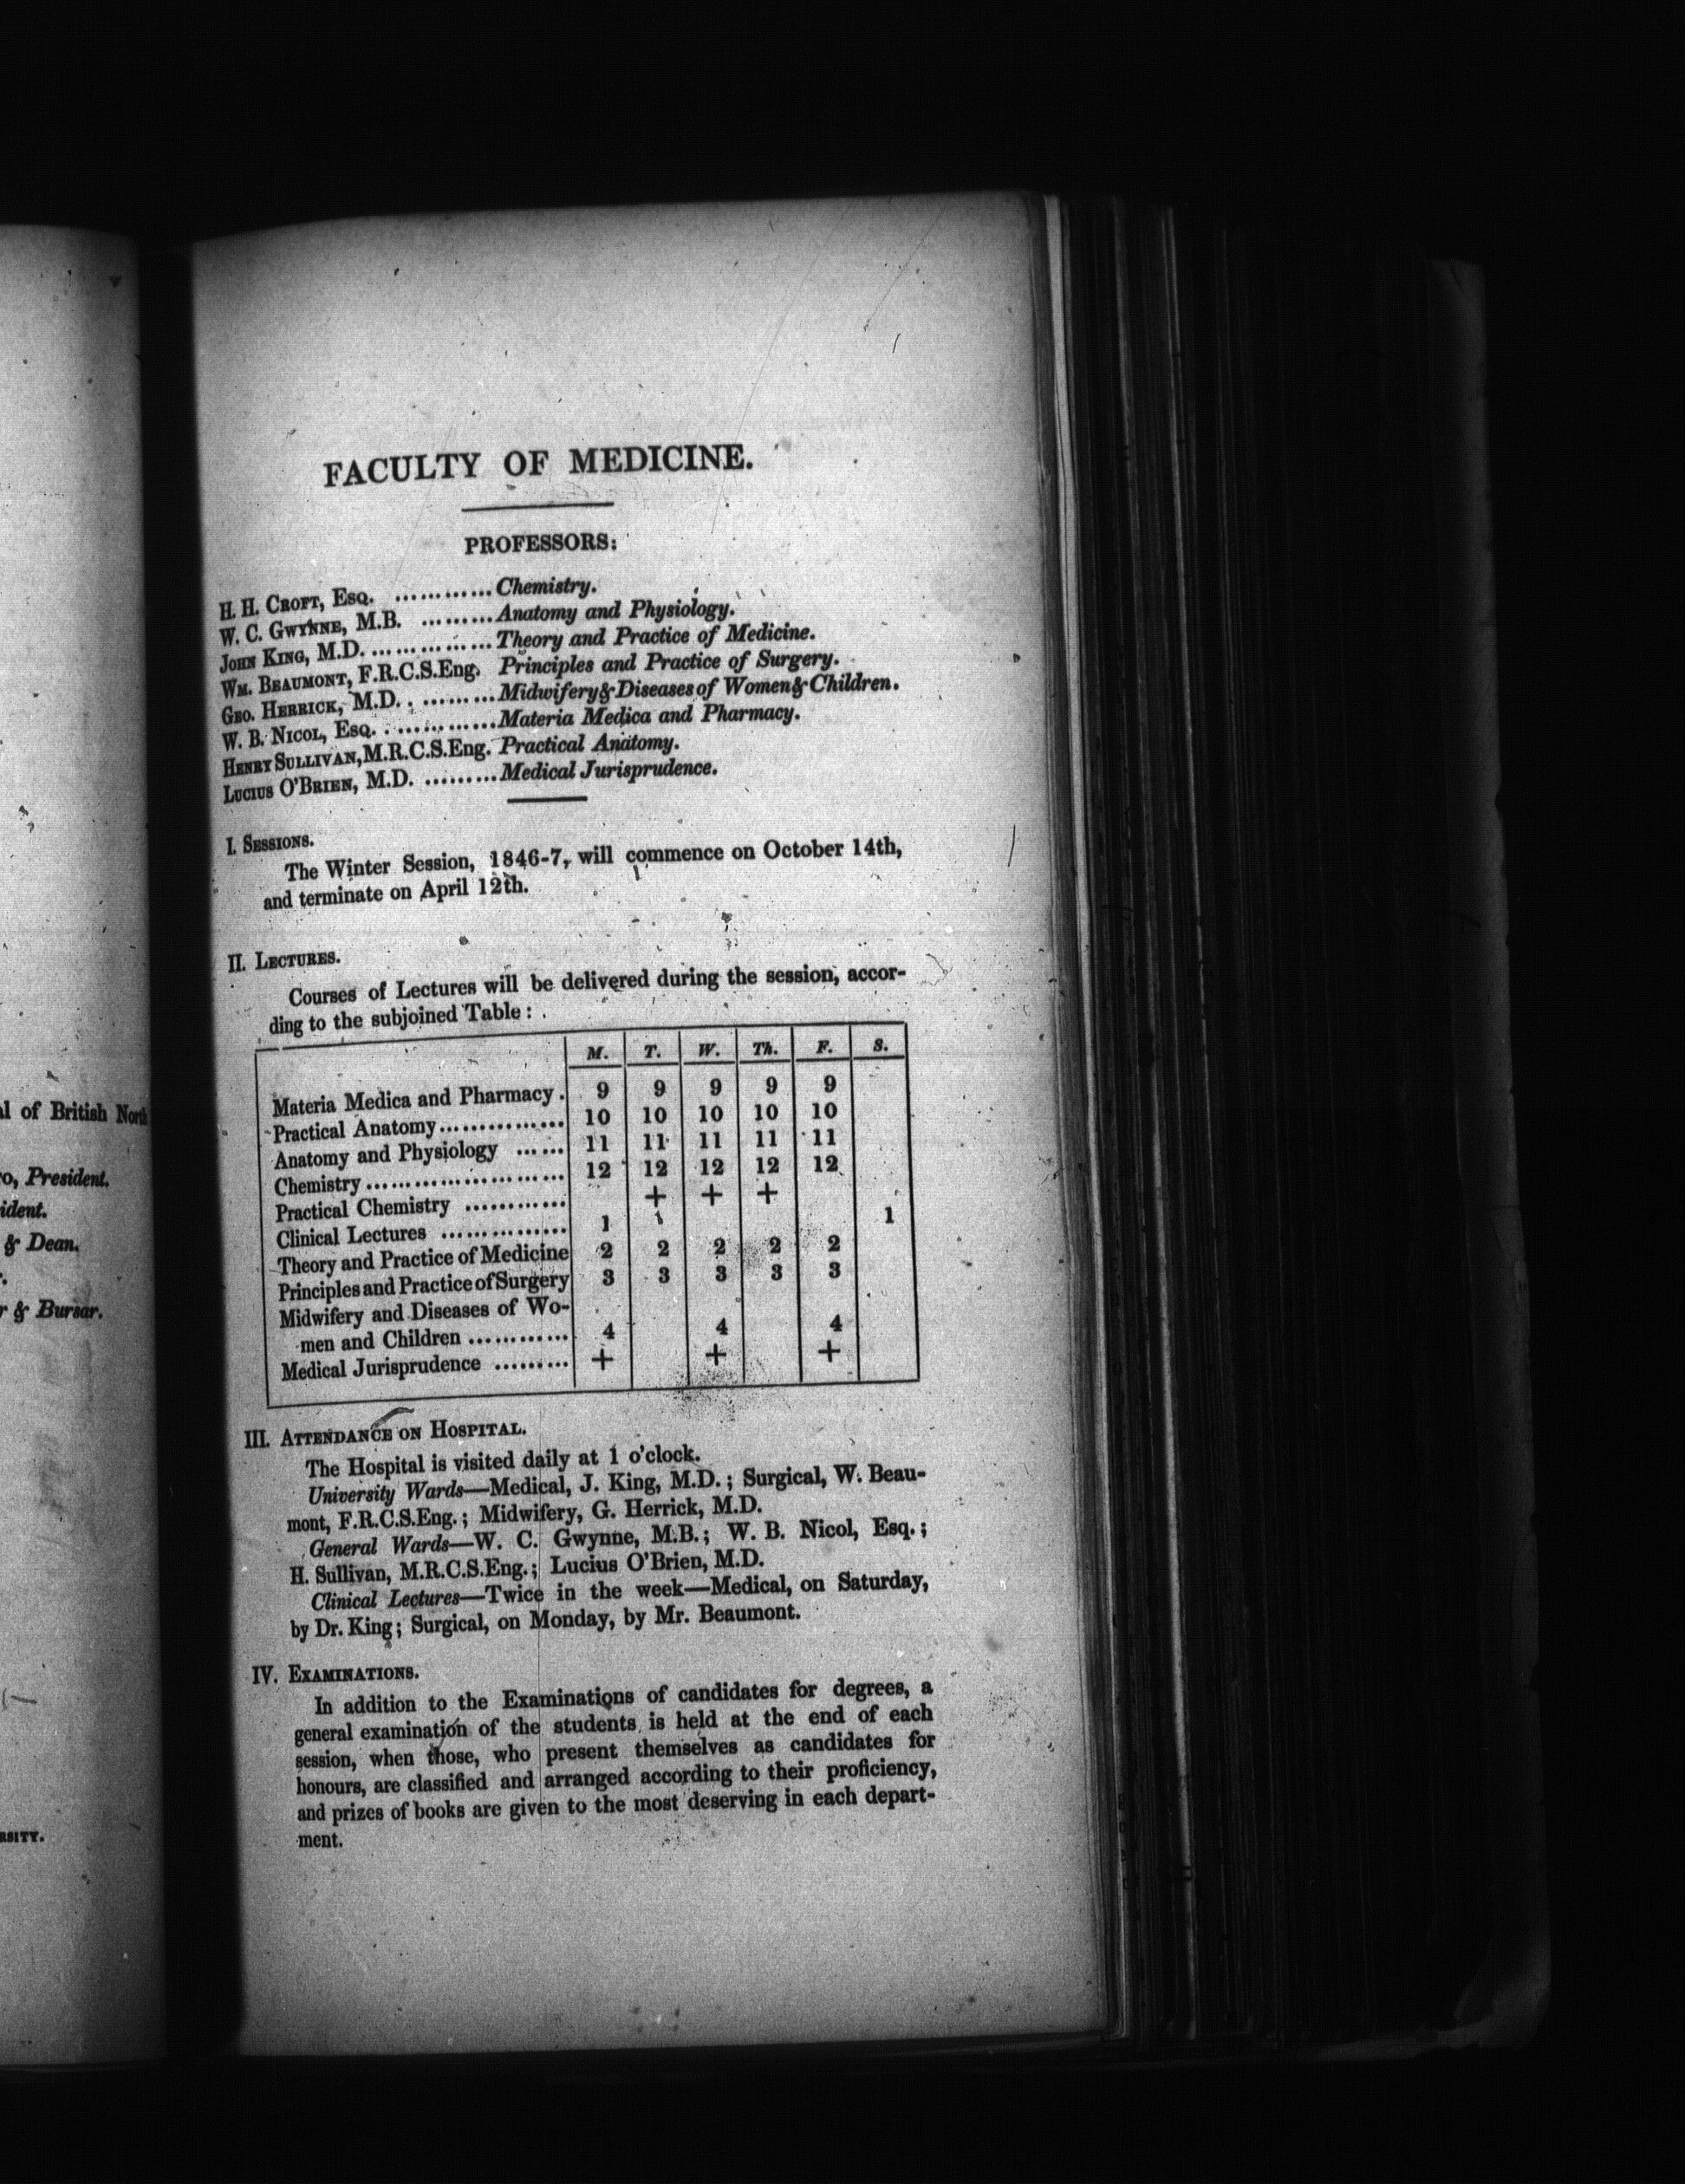 al of British North
President.
ident.
& Dean.
r & Bursar.
RSITY.
FACULTY OF MEDICINE.
PROFESSORS:
H. H. CROFT, ESQ. ............ Chemistry.
W. C. GWYNNE, M.B. ......... Anatomy and Physiology.
JOHN KING, M.D. ............... Theory and Practice of Medicine.
WM. BEAUMONT, F.R.C.S.Eng. Principles and Practice of Surgery.
GEO. HERRICK, M.D. .......... Midwifery & Diseases of Women & Children.
W. B. NICOL, ESQ. ............. Materia Medica and Pharmacy.
HENRY SULLIVAN, M.R.C.S.Eng. Practical Anatomy.
LUCIUS O'BRIEN, M.D. ......... Medical Jurisprudence.
I. SESSIONS.
The Winter Session, 1846-7, will commence on October 14th,
and terminate on April 12th.
II. LECTURES.
Courses of Lectures will be delivered during the session, accor-
ding to the subjoined Table:
M. T. W. Th. F. S.
Materia Medica and Pharmacy. 9 9 9 9 9
Practical Anatomy............... 10 10 10 10 10
Anatomy and Physiology ...... 11 11 11 11 11
Chemistry........................ 12 12 12 12 12
Practical Chemistry ............ + + +
Clinical Lectures ............... 1 1
Theory and Practice of Medicine 2 2 2 2 2
Principles and Practice of Surgery 3 3 3 3 3
Midwifery and Diseases of Wo-
men and Children ............ 4 4 4
Medical Jurisprudence ......... + + +
III. ATTENDANCE ON HOSPITAL.
The Hospital is visited daily at 1 o'clock.
University Wards—Medical, J. King, M.D.; Surgical, W. Beau-
mont, F.R.C.S.Eng.; Midwifery, G. Herrick, M.D.
General Wards—W. C. Gwynne, M.B.; W. B. Nicol, Esq.;
H. Sullivan, M.R.C.S.Eng.; Lucius O'Brien, M.D.
Clinical Lectures—Twice in the week—Medical, on Saturday,
by Dr. King; Surgical, on Monday, by Mr. Beaumont.
IV. EXAMINATIONS.
In addition to the Examinations of candidates for degrees, a
general examination of the students is held at the end of each
session, when those, who present themselves as candidates for
honours, are classified and arranged according to their proficiency,
and prizes of books are given to the most deserving in each depart-
ment.